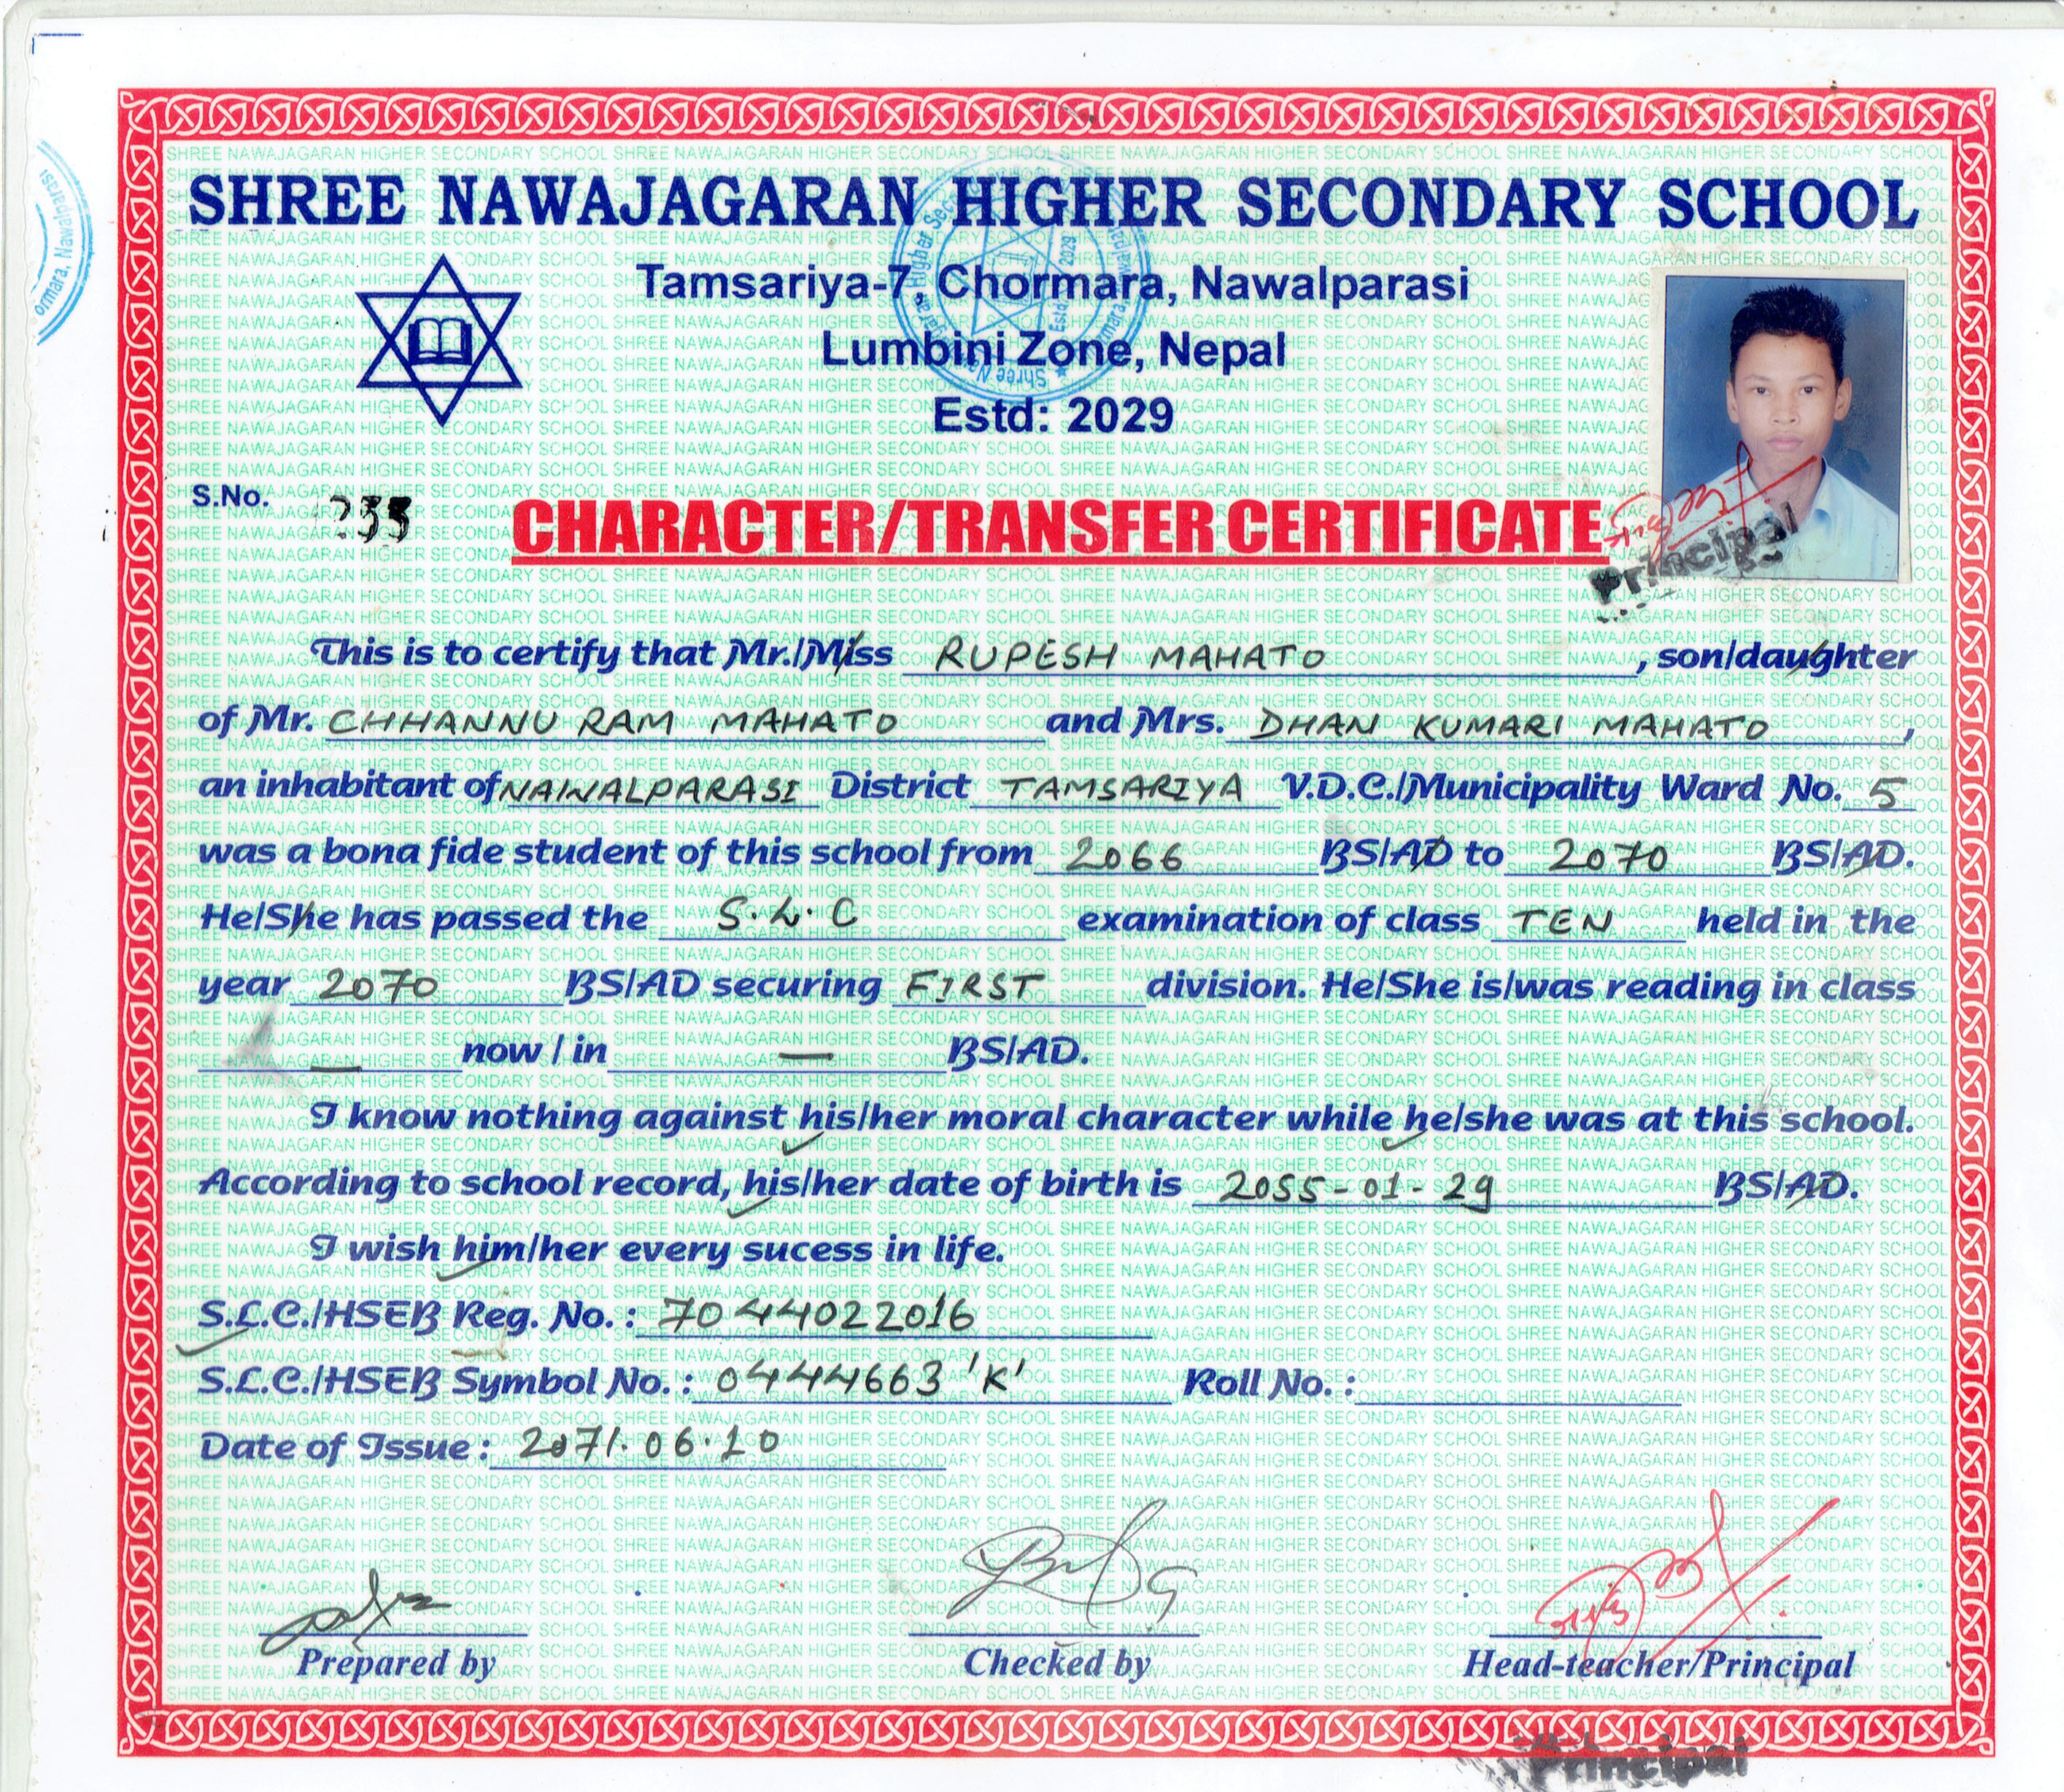 SHREE NAWAJAGARAN HIGHER SECONDARY SCHOOL
Tamsariya-7, Chormara, Nawalparasi
Lumbini Zone, Nepal
Estd: 2029
S.No.
CHARACTER/TRANSFER CERTIFICATE
Principal
This is to certify that Mr./Miss RUPESH MAHATO, son/daughter
of Mr. CHHANNU RAM MAHATO and Mrs. DHAN KUMARI MAHATO,
an inhabitant of NAWALPARASI District TAMSARIYA V.D.C./Municipality Ward No. 5
was a bona fide student of this school from 2066 BS/AD to 2070 BS/AD.
He/She has passed the S.L.C examination of class TEN held in the
year 2070 BS/AD securing FIRST division. He/She is/was reading in class
— now / in — BS/AD.
I know nothing against his/her moral character while he/she was at this school.
According to school record, his/her date of birth is 2055-01-29 BS/AD.
I wish him/her every sucess in life.
S.L.C./HSEB Reg. No. : 7044022016
S.L.C./HSEB Symbol No. : 0444663 'K' Roll No. :
Date of Issue : 2071.06.10
Prepared by Checked by Head-teacher/Principal
Principal